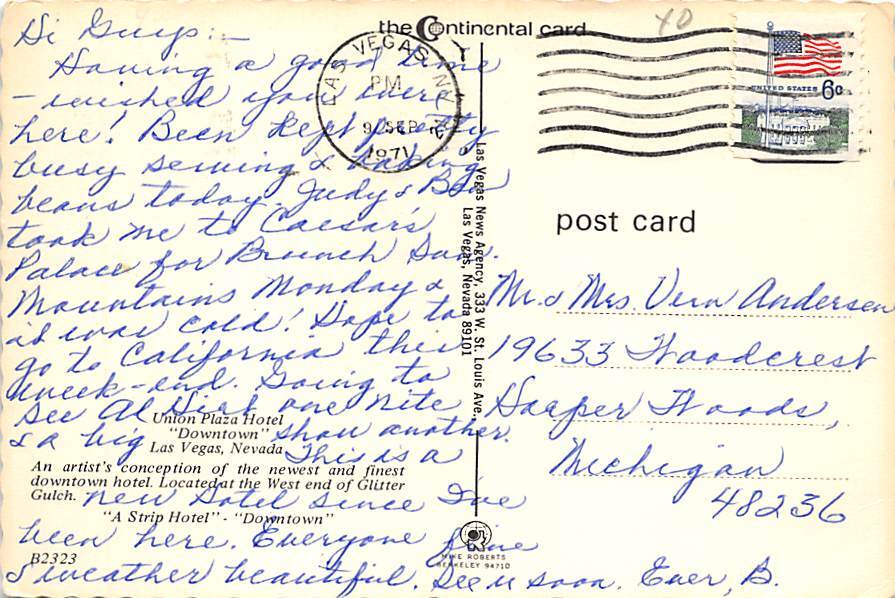 the Continental card
Hi Guys:—
Having a good time
— wished you were
here! Been kept pretty
busy sewing & baking
beans today. Judy & Ben
took me to Caesar's
Palace for Brunch Sun.
Mountains Monday &
it was cold! Hope to
go to California this
week-end. Going to
see Al Hirt one nite
& a big show another.
This is a
new Hotel since I've
been here. Everyone fine
& weather beautiful. See u soon. Ever, B.
Union Plaza Hotel
"Downtown"
Las Vegas, Nevada
An artist's conception of the newest and finest
downtown hotel. Located at the West end of Glitter
Gulch.
"A Strip Hotel" - "Downtown"
B2323
Las Vegas News Agency, 333 W. St. Louis Ave.,
Las Vegas, Nevada 89101
MIKE ROBERTS
BERKELEY 94710
LAS VEGAS, NV
PM
9 SEP
1971
UNITED STATES 6c
post card
Mr. & Mrs. Vern Andersen
19633 Woodcrest
Harper Woods,
Michigan
48236